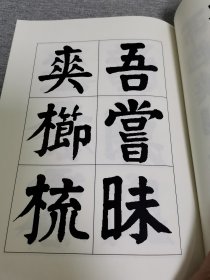 吾嘗昧
爽櫛梳